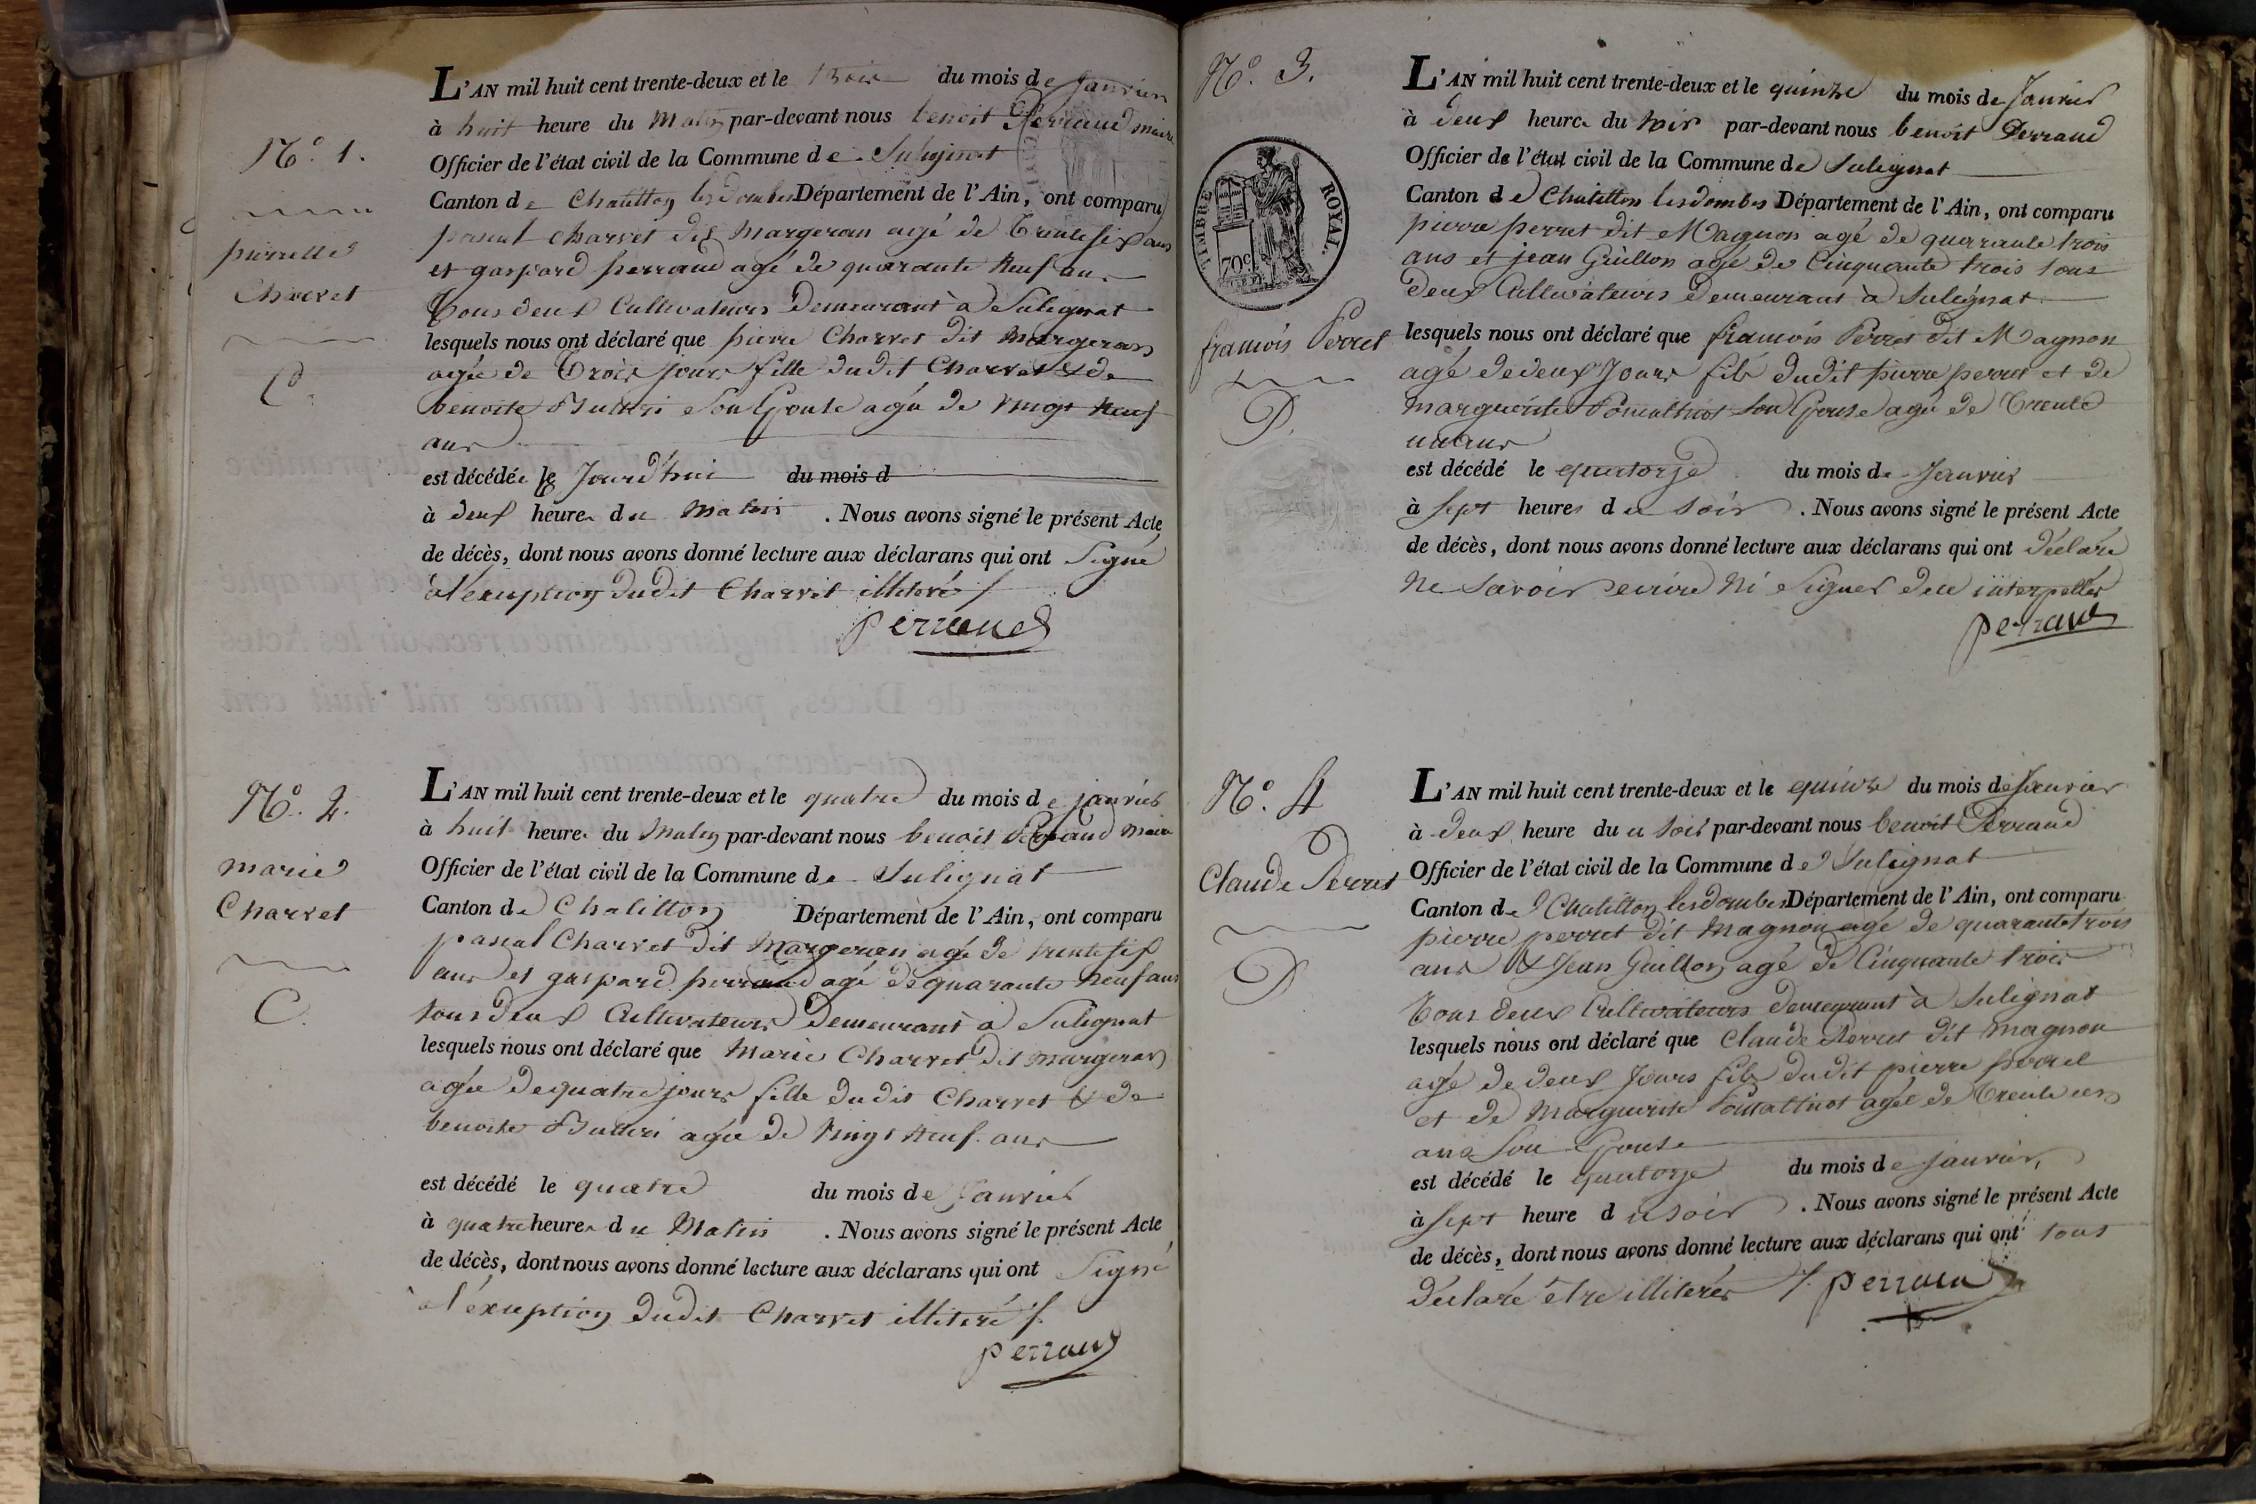 N.° 1.
pierrette
Charvet
C.
L'AN mil huit cent trente-deux et le trois du mois de janvier
à huit heure du Matin par-devant nous benoit Perraud maire
Officier de l'état civil de la Commune de Sulignat
Canton de Chatillon les dombes Département de l'Ain, ont comparu
pascal Charvet dit Margeran agé de Trente six ans
et gaspard perraud agé de quarante Neuf ans
Tous deux Cultivateurs Demeurant à Sulignat
lesquels nous ont déclaré que pierre Charvet dit Margeran
agée de Trois Jours fille dudit Charvet & de
benoite Buttet Son Epouse agée de vingt Neuf
ans
est décédée le Jourd'hui du mois d
à deux heure du Matin . Nous avons signé le présent Acte
de décès, dont nous avons donné lecture aux déclarans qui ont Signé
à l'exception dudit Charvet illiteré /
perraud
N.° 2.
marie
Charvet
C.
L'AN mil huit cent trente-deux et le quatre du mois de janvier
à huit heure du Matin par-devant nous benoit Perraud Maire
Officier de l'état civil de la Commune de Sulignat
Canton de Chatillon Département de l'Ain, ont comparu
pascal Charvet dit Margeran agé de trente six
ans et gaspard perraud agé de quarante Neuf ans
tous deux Cultivateurs Demeurant à Sulignat
lesquels nous ont déclaré que Marie Charvet dit Margeran
agée de quatre jours fille dudit Charvet & de
benoite agée de vingt Neuf ans
est décédé le quatre du mois de Janvier
à quatre heure du Matin . Nous avons signé le présent Acte
de décès, dont nous avons donné lecture aux déclarans qui ont Signé
à l'éxception dudit Charvet illiteré /.
perraud
N.° 3.
TIMBRE ROYAL.
70c
francois Perret
D.
L'AN mil huit cent trente-deux et le quinze du mois de Janvier
à deux heure du soir par-devant nous benoit Perraud
Officier de l'état civil de la Commune de Sulignat
Canton de Chatillon les dombes Département de l'Ain, ont comparu
pierre perret dit Magnon agé de quarante trois
ans et jean Guillon agé de Cinquante trois tous
deux Cultivateurs Demeurant à Sulignat
lesquels nous ont déclaré que francois Perret dit Magnon
agé de deux Jours fils dudit pierre perret et de
marguerite Son Epouse agée de Trente
un ans
est décédé le quatorze du mois de Janvier
à sept heures du soir . Nous avons signé le présent Acte
de décès, dont nous avons donné lecture aux déclarans qui ont déclaré
Ne Savoir ecrire Ni Signer de ce interpellés
perraud
N.° 4
Claude Perret
D
L'AN mil huit cent trente-deux et le quinze du mois de Janvier
à deux heure du soir par-devant nous benoit Perraud
Officier de l'état civil de la Commune de Sulignat
Canton de Chatillon les dombes Département de l'Ain, ont comparu
pierre perret dit Magnon agé de quarante trois
ans & Jean Guillon agé de Cinquante trois
Tous deux Cultivateurs demeurant à Sulignat
lesquels nous ont déclaré que Claude Perret dit Magnon
agé de deux Jours fils dudit pierre perret
et de Marguerite agée de Trente un
ans Son Epouse
est décédé le quatorze du mois de janvier
à sept heure du soir . Nous avons signé le présent Acte
de décès, dont nous avons donné lecture aux déclarans qui ont tous
déclaré être illiterés /. perraud